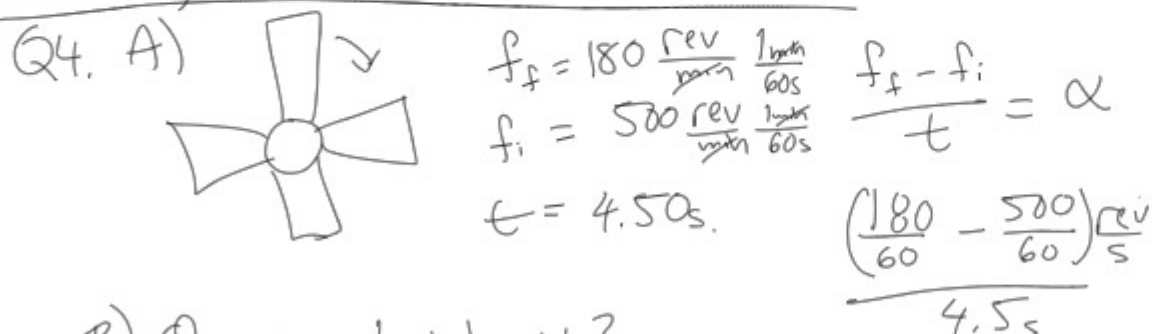 Q4. A)
f_f = 180 rev/min 1min/60s
f_i = 500 rev/min 1min/60s
t = 4.50s.
(f_f - f_i)/t = α
(180/60 - 500/60) rev/s
4.5s
B)